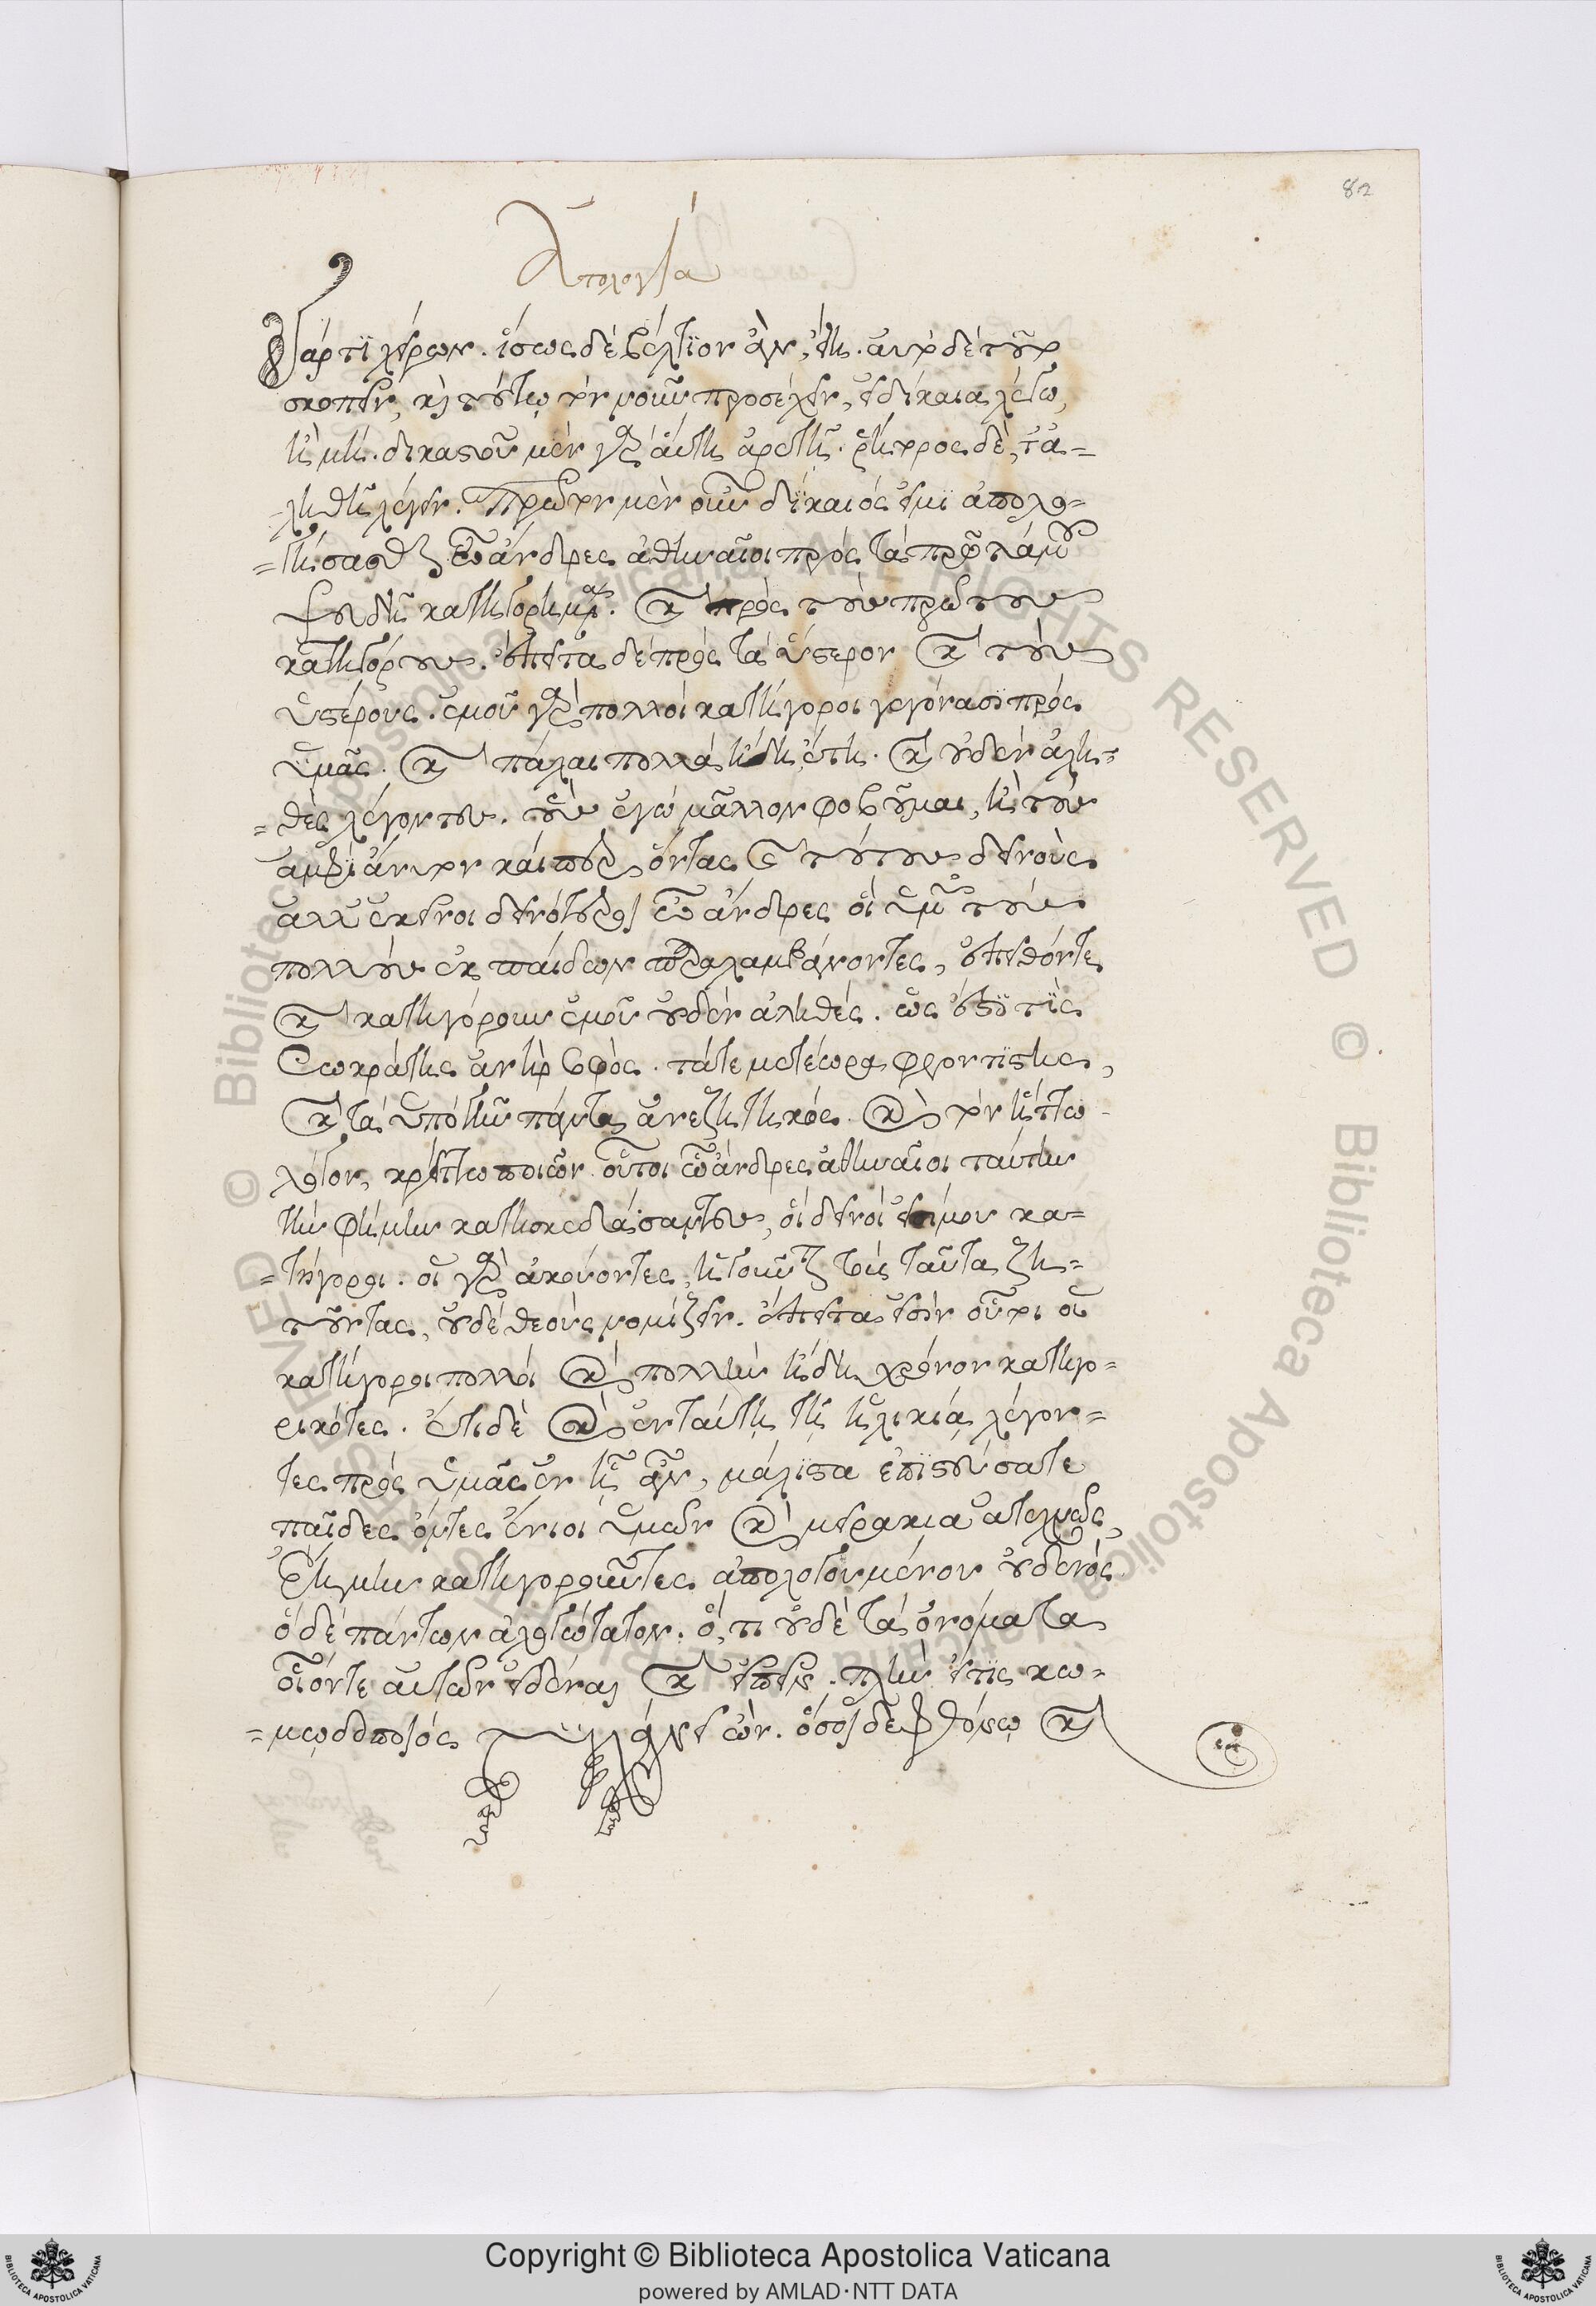 82
Ἀπολογία
γὰρ τι χείρων. ἴσως δὲ βελτίον ἂν εἴη. αὐτὸ δὲ τοῦτο
σκοπεῖν, καὶ τούτῳ τὸν νοῦν προσέχειν, εἰ δίκαια λέγω,
ἢ μή. δικαστοῦ μὲν γὰρ αὕτη ἀρετή. ῥήτορος δὲ, τἀ=
=ληθῆ λέγειν. Πρῶτον μὲν οὖν δίκαιός εἰμι ἀπολο=
=γήσασθαι ὦ ἄνδρες ἀθηναῖοι πρὸς τὰ πρῶτά μου
ψευδῆ κατηγορημένα. καὶ πρὸς τοὺς πρώτους
κατηγόρους. ἔπειτα δὲ πρὸς τὰ ὕστερον καὶ τοὺς
ὑστέρους. ἐμοῦ γὰρ πολλοὶ κατήγοροι γεγόνασι πρὸς
ὑμᾶς. καὶ πάλαι πολλὰ ἤδη ἔτη. καὶ οὐδὲν ἀλη=
=θὲς λέγοντες. οὓς ἐγὼ μᾶλλον φοβοῦμαι, ἢ τοὺς
ἀμφὶ ἄνυτον καίπερ ὄντας καὶ τούτους δεινούς
ἀλλ' ἐκεῖνοι δεινότεροι ὦ ἄνδρες οἳ ὑμῶν τοὺς
πολλοὺς ἐκ παίδων παραλαμβάνοντες, ἔπειθόν τε
καὶ κατηγόρουν ἐμοῦ οὐδὲν ἀληθές. ὡς ἔστι τὶς
Σωκράτης ἀνὴρ σοφὸς. τά τε μετέωρα φροντιστὴς,
καὶ τὰ ὑπὸ γῆν πάντα ἀνεζητηκὼς. καὶ τὸν ἥττω
λόγον, κρείττω ποιῶν. οὗτοι ὦ ἄνδρες ἀθηναῖοι ταύτην
τὴν φήμην κατασκεδάσαντες, οἱ δεινοί εἰσίν μου κα=
=τήγοροι. οἱ γὰρ ἀκούοντες, ἡγοῦνται τοὺς ταῦτα ζη=
τοῦντας, οὐδὲ θεοὺς νομίζειν. ἔπειτα εἰσὶν οὗτοι οἱ
κατήγοροι πολλοὶ καὶ πολὺν ἤδη χρόνον κατηγο=
ρηκότες. ἔτι δὲ καὶ ἐν ταύτῃ τῇ ἡλικίᾳ λέγον=
τες πρὸς ὑμᾶς ἐν ᾗ ἂν, μάλιστα ἐπιστεύσατε
παῖδες ὄντες ἔνιοι ὑμῶν καὶ μειράκια ἀτεχνῶς
ἐρήμην κατηγοροῦντες ἀπολογουμένου οὐδενός
ὃ δὲ πάντων ἀλογώτατον. ὅ,τι οὐδὲ τὰ ὀνόματα
οἷόν τε αὐτῶν εἰδέναι καὶ εἰπεῖν. πλὴν εἴ τις κω=
=μῳδοποιός τυγχάνει ὤν. ὅσοι δὲ φθόνῳ καὶ